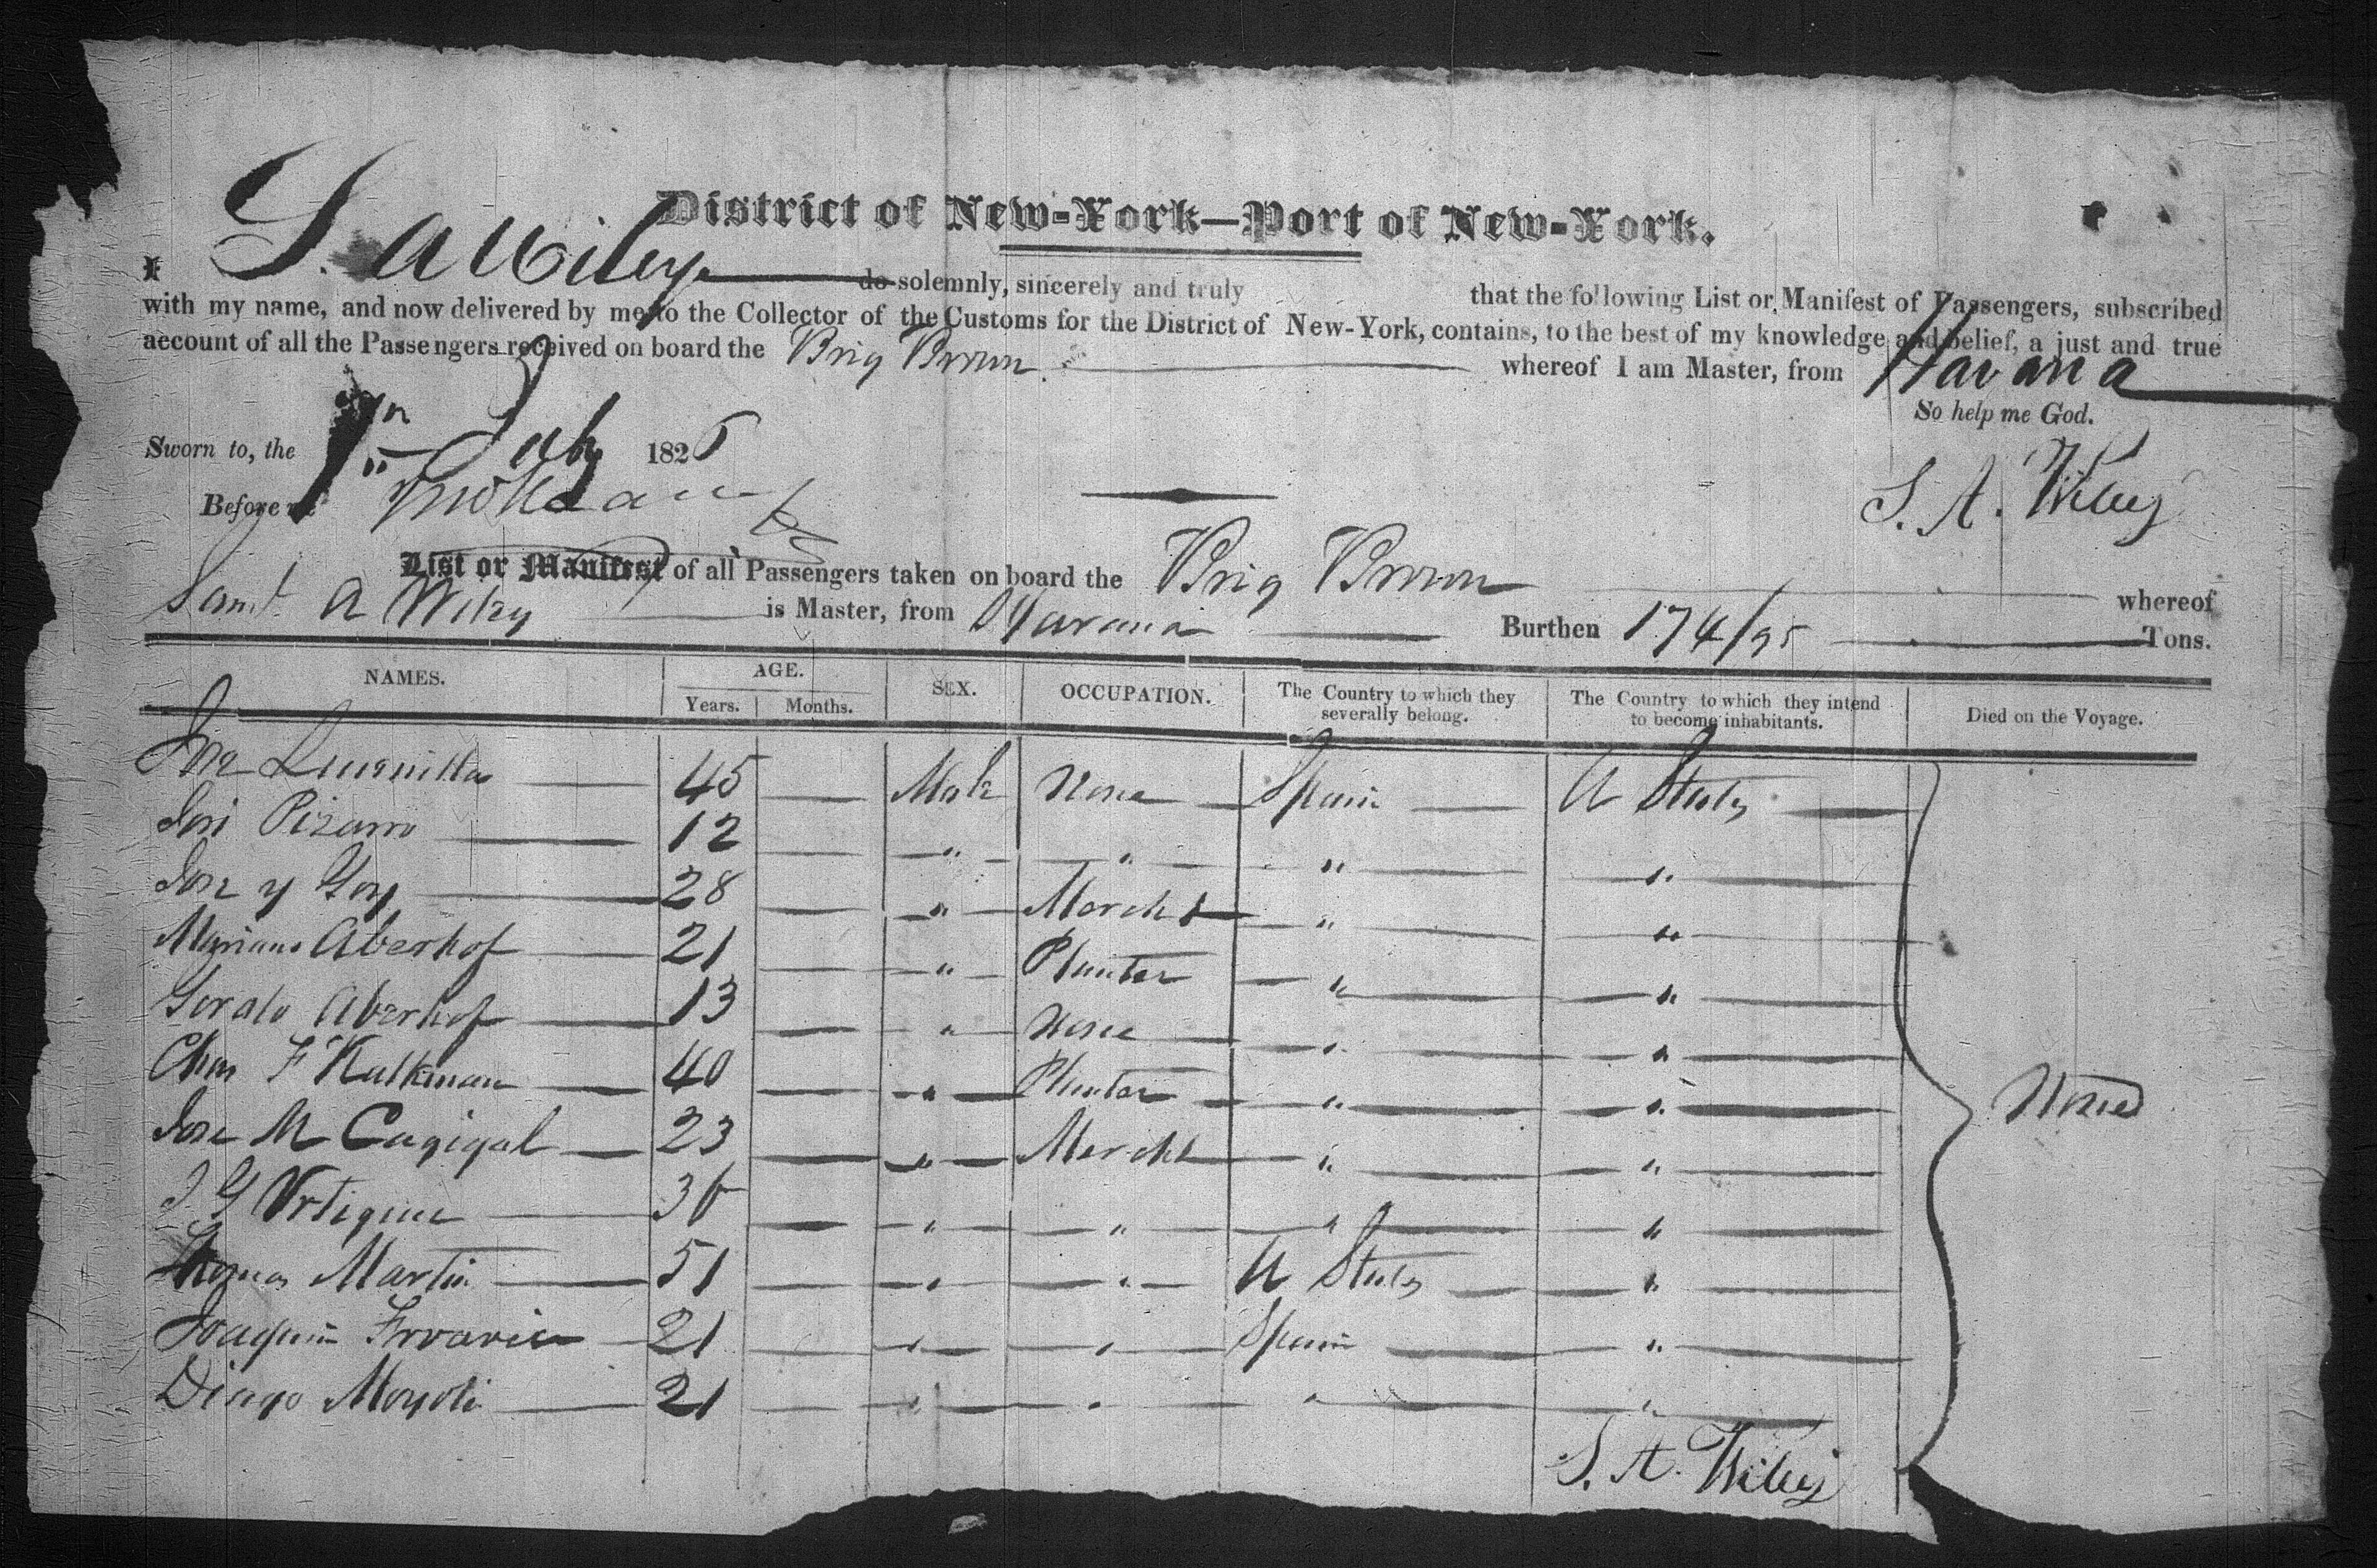 District of New-York—Port of New-York.
I S. A Wiley do solemnly, sincerely and truly that the following List or Manifest of Passengers, subscribed
with my name, and now delivered by me to the Collector of the Customs for the District of New-York, contains, to the best of my knowledge and belief, a just and true
account of all the Passengers received on board the Brig Brown whereof I am Master, from Havana
So help me God.
Sworn to, the July 182
Before me
S. A. Wiley
List or Manifest of all Passengers taken on board the Brig Brown whereof
Saml. A Wiley is Master, from Havana Burthen 174/95 Tons.
NAMES. AGE. SEX. OCCUPATION. The Country to which they severally belong. The Country to which they intend to become inhabitants. Died on the Voyage.
Years. Months.
Jose 45 Male None Spain U States
Jose Pizarro 12 " " " "
Jose y Goy 28 " Mercht " "
Mariano Aberhof 21 " Planter " "
Aberhof 13 " None " "
Chas F Kalkman 40 " Planter " "
Jose M Cagigal 23 " Mercht " "
J G Urtique 36 " " " "
Thomas Martin 51 " " U States "
Joaquin 21 " " Spain "
Diego 21 " " " "
None
S. A. Wiley